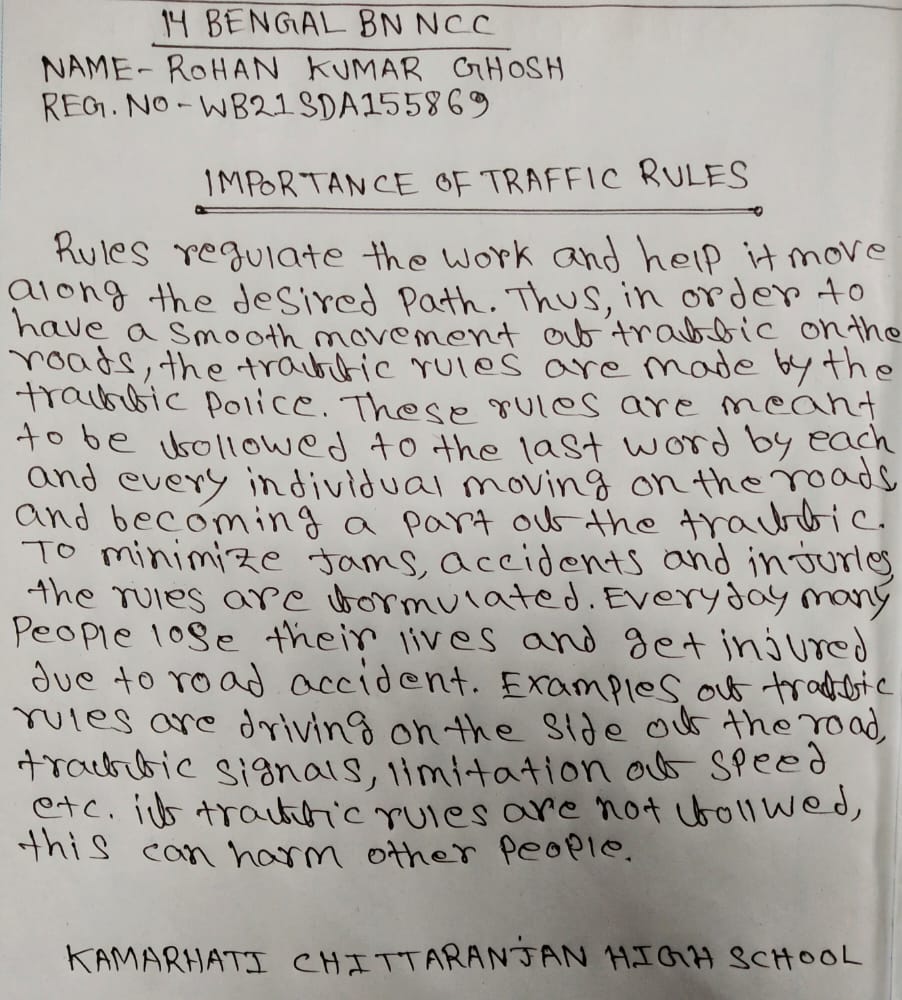 14 BENGAL BN NCC
NAME- ROHAN KUMAR GHOSH
REG. NO - WB21SDA155869
IMPORTANCE OF TRAFFIC RULES
Rules regulate the work and help it move
along the desired path. Thus, in order to
have a smooth movement of traffic on the
roads, the traffic rules are made by the
traffic police. These rules are meant
to be followed to the last word by each
and every individual moving on the roads
and becoming a part of the traffic.
To minimize jams, accidents and injuries
the rules are formulated. Everyday many
People lose their lives and get injured
due to road accident. Examples of traffic
rules are driving on the side of the road,
traffic signals, limitation of speed
etc. if traffic rules are not follwed,
this can harm other people.
KAMARHATI CHITTARANJAN HIGH SCHOOL